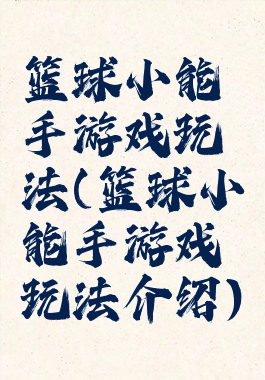 篮球小能
手游戏玩
法(篮球小
能手游戏
玩法介绍)